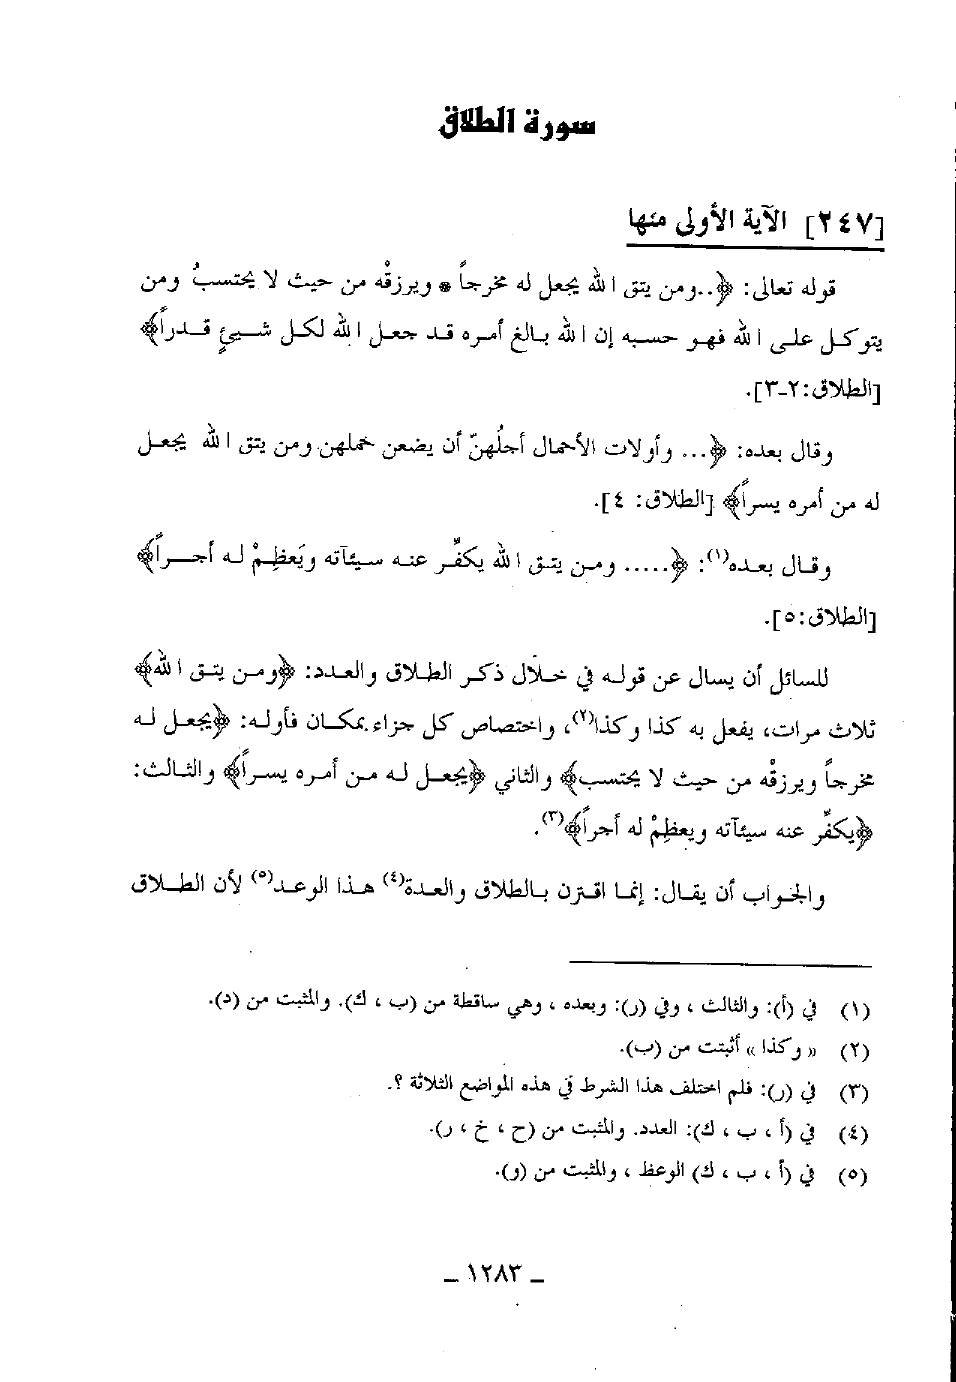 سورة الطلاق
[٢٤٧] الآية الأولى منها
قوله تعالى: ﴿..ومن يتق الله يجعل له مخرجاً * ويرزقْه من حيث لا يحتسبُ ومن
يتوكل على الله فهو حسبه إن الله بالغ أمره قد جعل الله لكل شيئٍ قدراً﴾
[الطلاق:٢-٣].
وقال بعده: ﴿... وأولات الأحمال أجلُهنّ أن يضعن حملهن ومن يتق الله يجعل
له من أمره يسراً﴾ [الطلاق: ٤].
وقال بعده(١): ﴿..... ومن يتق الله يكفِّر عنه سيئآته ويَعظِمْ له أجراً﴾
[الطلاق:٥].
للسائل أن يسال عن قوله في خلال ذكر الطلاق والعدد: ﴿ومن يتق الله﴾
ثلاث مرات، يفعل به كذا وكذا(٢)، واختصاص كل جزاء بمكان فأوله: ﴿يجعل له
مخرجاً ويرزقْه من حيث لا يحتسب﴾ والثاني ﴿يجعل له من أمره يسراً﴾ والثالث:
﴿يكفِّر عنه سيئآته ويعظِمْ له أجراً﴾(٣).
والجواب أن يقال: إنما اقترن بالطلاق والعدة(٤) هذا الوعد(٥) لأن الطلاق
(١) في (أ): والثالث ، وفي (ر): وبعده ، وهي ساقطة من (ب ، ك). والمثبت من (د).
(٢) « وكذا » أثبتت من (ب).
(٣) في (ر): فلم اختلف هذا الشرط في هذه المواضع الثلاثة ؟.
(٤) في (أ ، ب ، ك): العدد. والمثبت من (ح ، خ ، ر).
(٥) في (أ ، ب ، ك) الوعظ ، والمثبت من (و).
_ ١٢٨٣ _